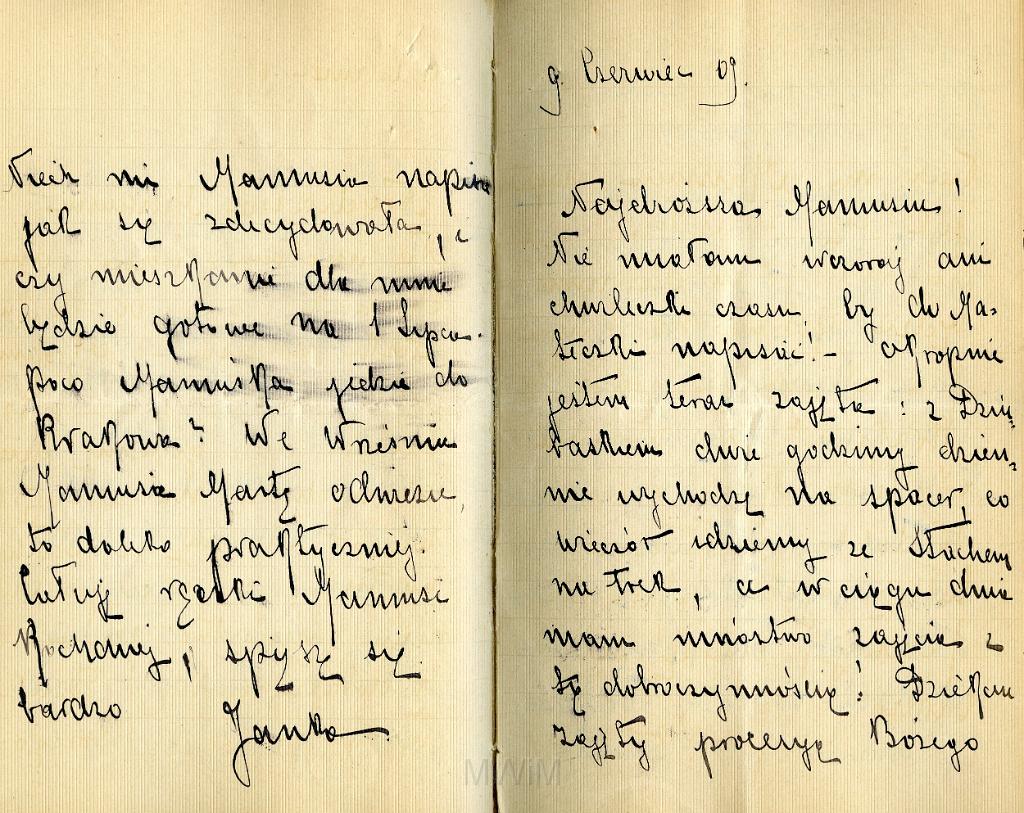 Niech mi Mamusia napisze
jak się zdecydowała, i
czy mieszkanie dla mnie
będzie gotowe na 1 Lipca.
Poco Mamuśka jedzie do
Krakowa? We Wrześniu
Mamusia Martę odwiezie,
to daleko praktyczniej.
Całuję rączki Mamusi
Kochanej, spieszę się
bardzo
Janka
9. Czerwiec 09.
Najdroższa Mamusiu!
Nie miałam wczoraj ani
chwileczki czasu, by do Ma-
teczki napisać! - Okropnie
jestem teraz zajęta: z Dziu-
baskiem dwie godziny dzien-
nie wychodzę na spacer, co
wieczór idziemy ze Stachem
na trek, a w ciągu dnia
mam mnóstwo zajęcia z
tą dobroczynnością! Dziekan
zajęty procesyą Bożego
MWiM